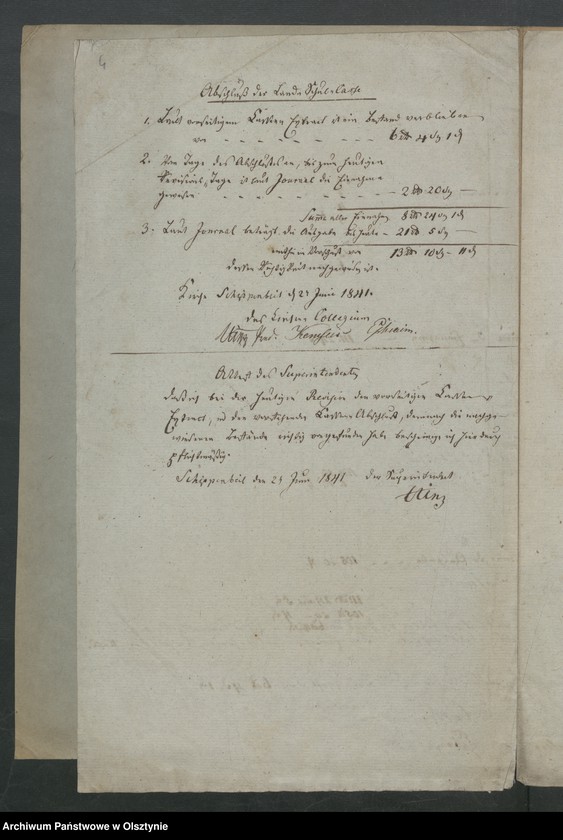 4
Abschluß der Land-Schul-Casse
1. Laut vorseitigem Cassen Extract ist ein Bestand verblieben
von - - - - - - 6 rtl 4 sg 1 d
2. Vom Tage des Abschlusses, bis zum heutigen
Revisions-Tage ist laut Journal die Einnahme
gewesen - - - - - - - 2 rtl 20 sg —
Summe aller Einnahmen 8 rtl 24 sg 1 d
3. Laut Journal beträgt die Ausgabe bis heute - 21 rtl 5 sg —
mithin Vorschuß von 13 rtl 10 sg - 11 d
dessen Richtigkeit nachgewiesen ist.
Kirche Schippenbeil d 23 Juni 1841.
Das Kirchen Collegium
Attest des Superintendenten
Daß ich bei der heutigen Revision den vorseitigen Cassen
Extract, und den vorstehenden Cassen Abschluß, demnach die nachge-
wiesenen Bestände richtig vorgefunden habe bescheinige ich hierdurch
pflichtmäßig.
Schippenbeil den 23 Juni 1841 Der Superintendent
Archiwum Państwowe w Olsztynie